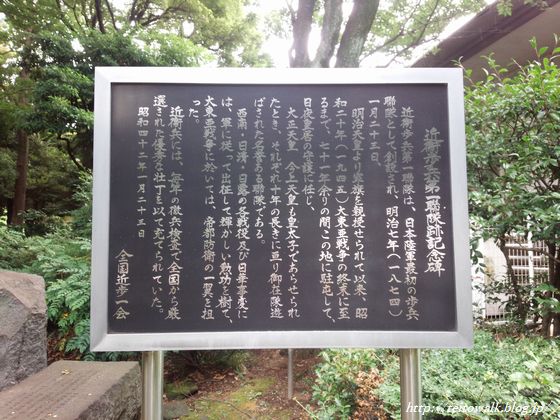 近衛歩兵第一聯隊跡記念碑
近衛歩兵第一聯隊は、日本陸軍最初の歩兵
聯隊として創設され、明治七年(一八七四)
一月二十三日、
明治天皇より軍旗を親授せられて以来、昭
和二十年(一九四五)大東亜戦争の終末に至
るまで、七十一年余りの間この地に駐屯して、
日夜皇居の守護に任じ、
大正天皇、今上天皇も皇太子であらせられ
たとき、それぞれ十年の長きに亘り御在隊遊
ばされた名誉ある聯隊である。
西南・日清・日露の各戦役及び日華事変に
は、軍に従って出征して輝かしい勲功を樹て、
大東亜戦争に於いては、帝都防衛の一翼を担
った。
近衛兵には、毎年の徴兵検査で全国から厳
選された優秀な壮丁を以て充てられていた。
昭和四十二年一月二十三日
全国近歩一会
http://reirowalk.blog.jp/